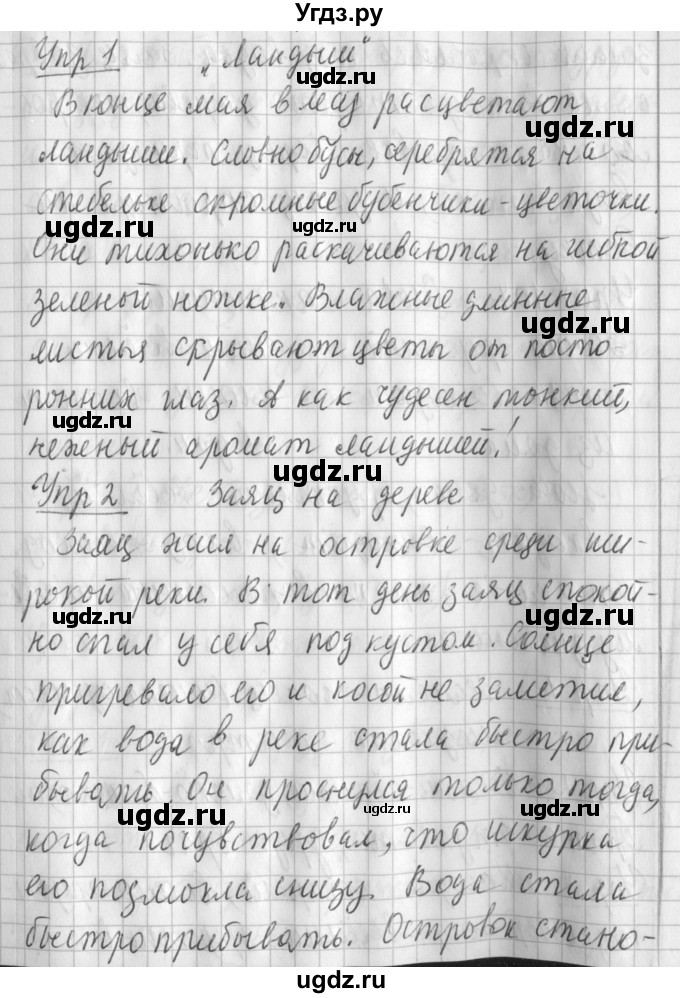 Угдз.ру
Упр 1 „Ландыш“
ugdz.ru
В конце мая в лесу расцветают
ugdz.ru
ландыши. Словно бусы, серебрятся на
ugdz.ru
стебельке скромные бубенчики - цветочки.
ugdz.ru
Они тихонько раскачиваются на гибкой
зеленой ножке. Влажные длинные
ugdz.ru
листья скрывают цветы от посто-
ронних глаз. А как чудесен тонкий,
ugdz.ru
ugdz.ru
нежный аромат ландышей!
ugdz.ru
Упр 2 Заяц на дереве
ugdz.ru
Заяц жил на островке среди ши-
рокой реки. В тот день заяц спокой-
ugdz.ru
ugdz.ru
но спал у себя под кустом. Солнце
ugdz.ru
пригревало его и косой не заметил,
как вода в реке стала быстро при-
ugdz.ru
бывать. Он проснулся только тогда,
ugdz.ru
ugdz.ru
когда почувствовал, что шкурка
его подмокла снизу. Вода стала
ugdz.ru
ugdz.ru
быстро прибывать. Островок стано-
ugdz.ru